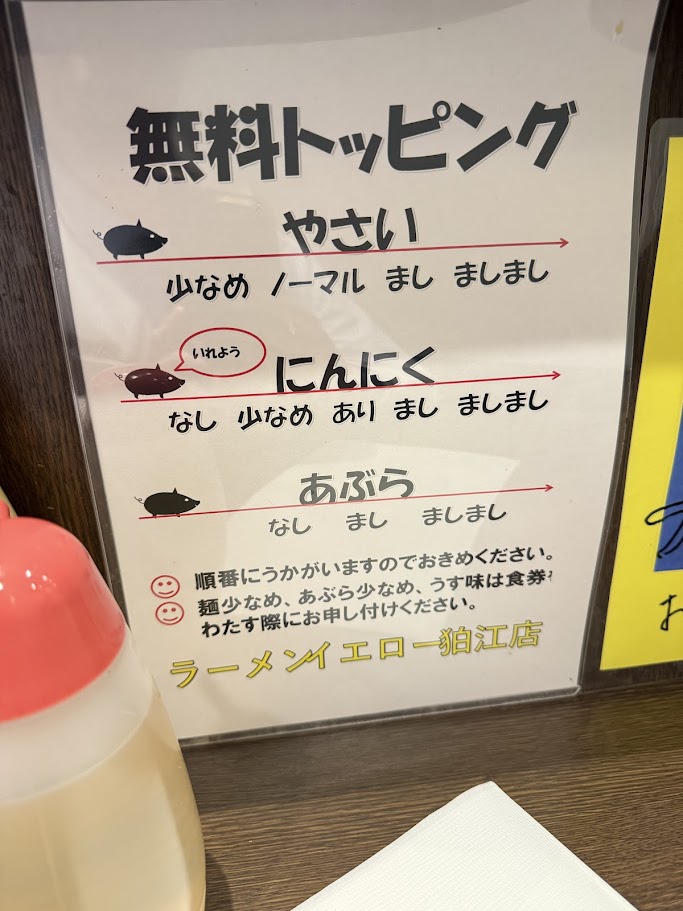 無料トッピング
やさい
少なめ ノーマル まし ましまし
いれよう
にんにく
なし 少なめ あり まし ましまし
あぶら
なし まし ましまし
順番にうかがいますのでおきめください。
麺少なめ、あぶら少なめ、うす味は食券
わたす際にお申し付けください。
ラーメンイエロー狛江店
お